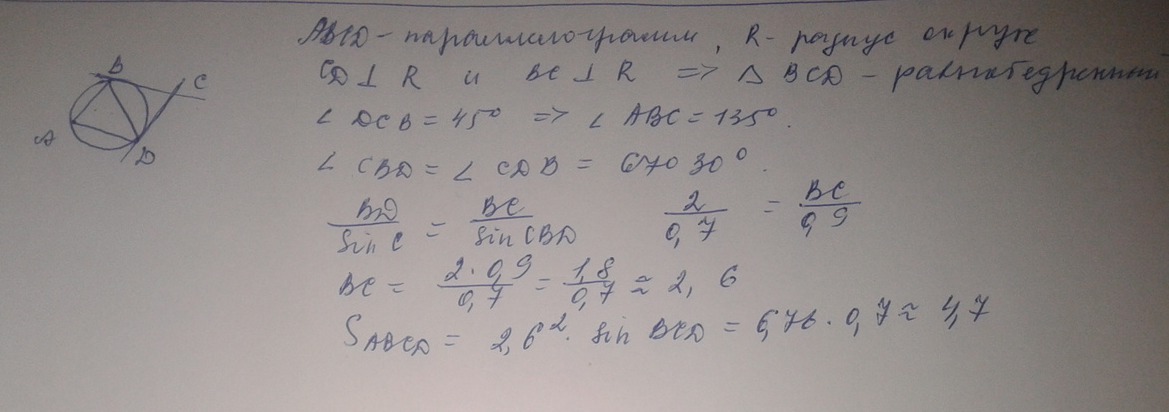 ABCD - параллелограмм, R - радиус окруж
CD ⊥ R и BC ⊥ R => △ BCD - равнобедренный
∠ DCB = 45° => ∠ ABC = 135°.
∠ CBD = ∠ CDB = 67° 30°.
BD / sin C = BC / sin CBD    2 / 0,7 = BC / 0,9
BC = 2 · 0,9 / 0,7 = 1,8 / 0,7 ≈ 2,6
S ABCD = 2,6² · sin BCD = 6,76 · 0,7 ≈ 4,7
B
C
A
D